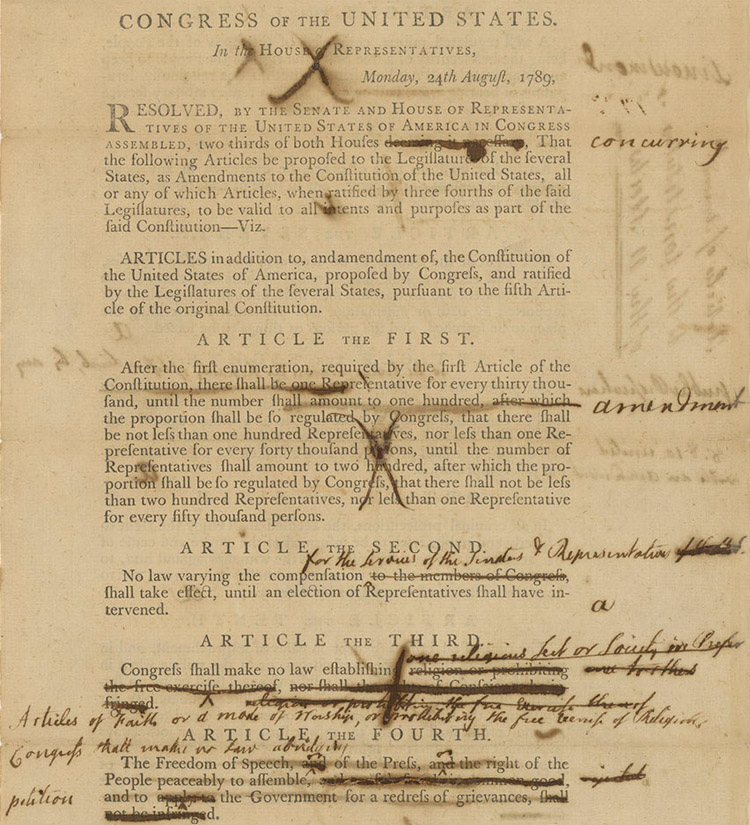 CONGRESS OF THE UNITED STATES.
In the HOUSE of REPRESENTATIVES,
Monday, 24th Auguſt, 1789,
RESOLVED, BY THE SENATE AND HOUSE OF REPRESENTA-
TIVES OF THE UNITED STATES OF AMERICA IN CONGRESS
ASSEMBLED, two thirds of both Houſes deeming it neceſſary, That
concurring
the following Articles be propoſed to the Legiſlatures of the ſeveral
States, as Amendments to the Conſtitution of the United States, all
or any of which Articles, when ratified by three fourths of the ſaid
Legiſlatures, to be valid to all intents and purpoſes as part of the
ſaid Conſtitution—Viz.
ARTICLES in addition to, and amendment of, the Conſtitution of
the United States of America, propoſed by Congreſs, and ratified
by the Legiſlatures of the ſeveral States, purſuant to the fifth Arti-
cle of the original Conſtitution.
ARTICLE THE FIRST.
After the firſt enumeration, required by the firſt Article of the
Conſtitution, there ſhall be one Repreſentative for every thirty thou-
ſand, until the number ſhall amount to one hundred, after which
amendment
the proportion ſhall be ſo regulated by Congreſs, that there ſhall
be not leſs than one hundred Repreſentatives, nor leſs than one Re-
preſentative for every forty thouſand perſons, until the number of
Repreſentatives ſhall amount to two hundred, after which the pro-
portion ſhall be ſo regulated by Congreſs, that there ſhall not be leſs
than two hundred Repreſentatives, nor leſs than one Repreſentative
for every fifty thouſand perſons.
ARTICLE THE SECOND.
for the services of the Senators & Representatives
No law varying the compenſation to the members of Congreſs,
ſhall take effect, until an election of Repreſentatives ſhall have in-
a
tervened.
ARTICLE THE THIRD.
one religious Sect or Society in Prefer
Congreſs ſhall make no law eſtabliſhing religion or prohibiting
ence to others
the free exerciſe thereof, nor ſhall the of Conſcience be
fringed.
religion or prohibiting the free Exercise thereof
Articles of Faith or a mode of Worship, or prohibiting the free exercise of Religion,
ARTICLE THE FOURTH.
Congreſs shall make no Law abridging
The Freedom of Speech, and of the Preſs, and the right of the
People peaceably to aſſemble, and common good,
and to apply to the Government for a redreſs of grievances, ſhall
petition
not be infringed.